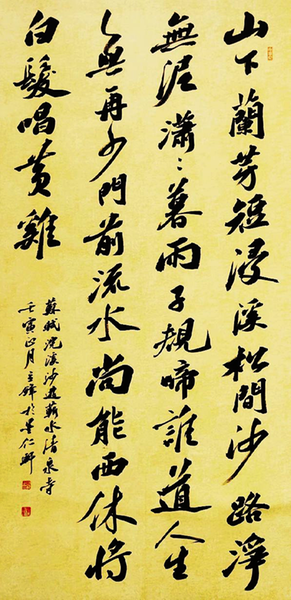 山下蘭芽短浸溪松間沙路淨
無泥瀟々暮雨子規啼誰道人生
無再少門前流水尚能西休將
白髮唱黃雞
蘇軾浣溪沙遊蘄水清泉寺
壬寅正月立鋒於